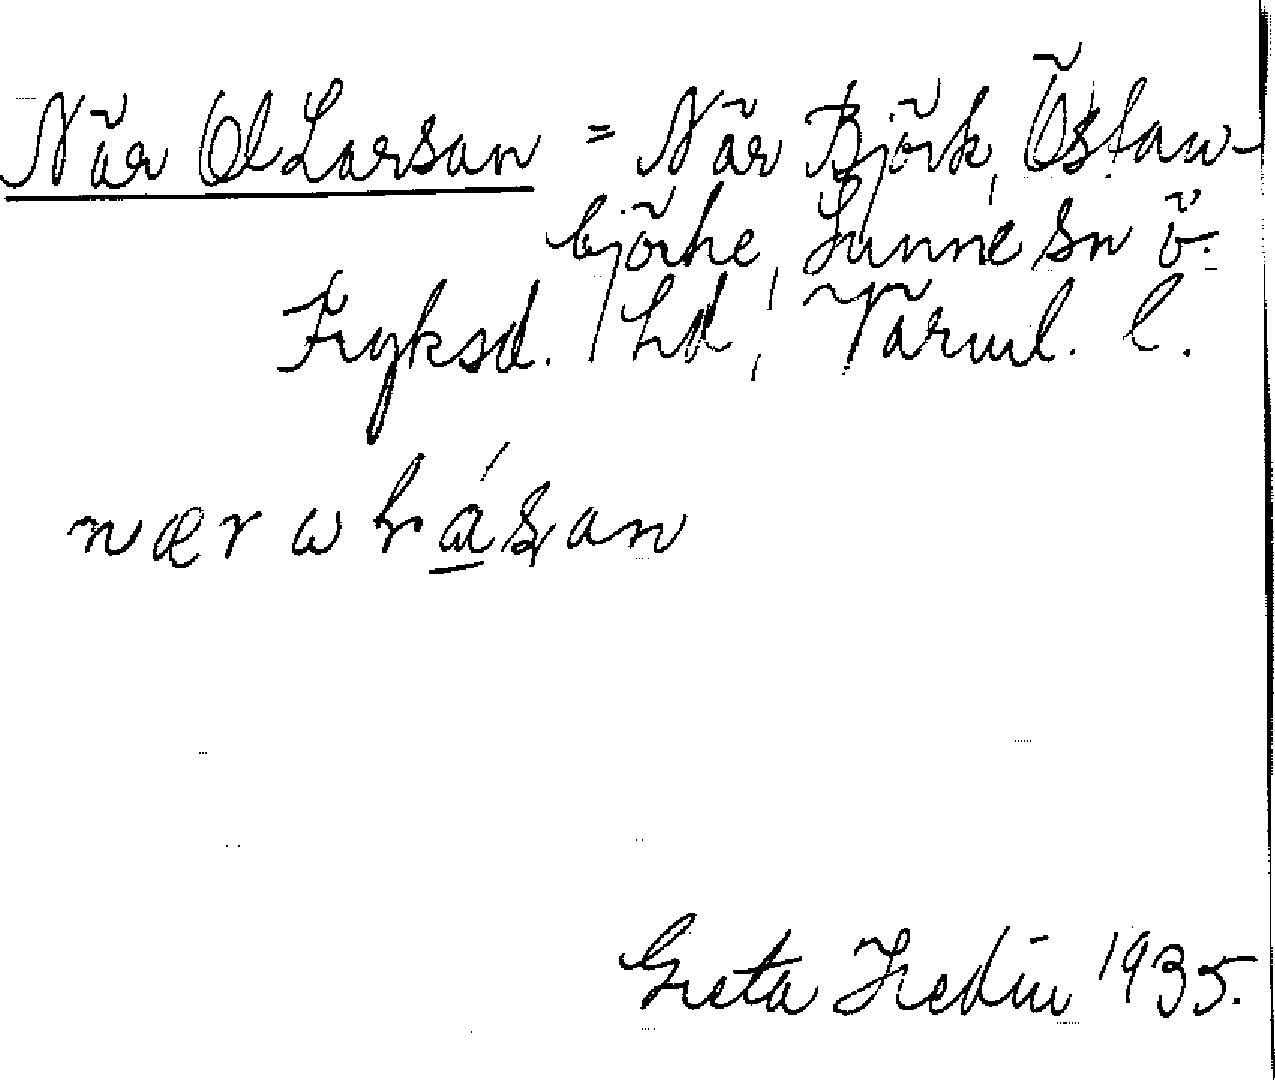 När Ol Larsan = När Björk, Östan-
björke, Sunne sn ö.
Fryksd. hd, Värml. l.
Greta Hedin 1935.